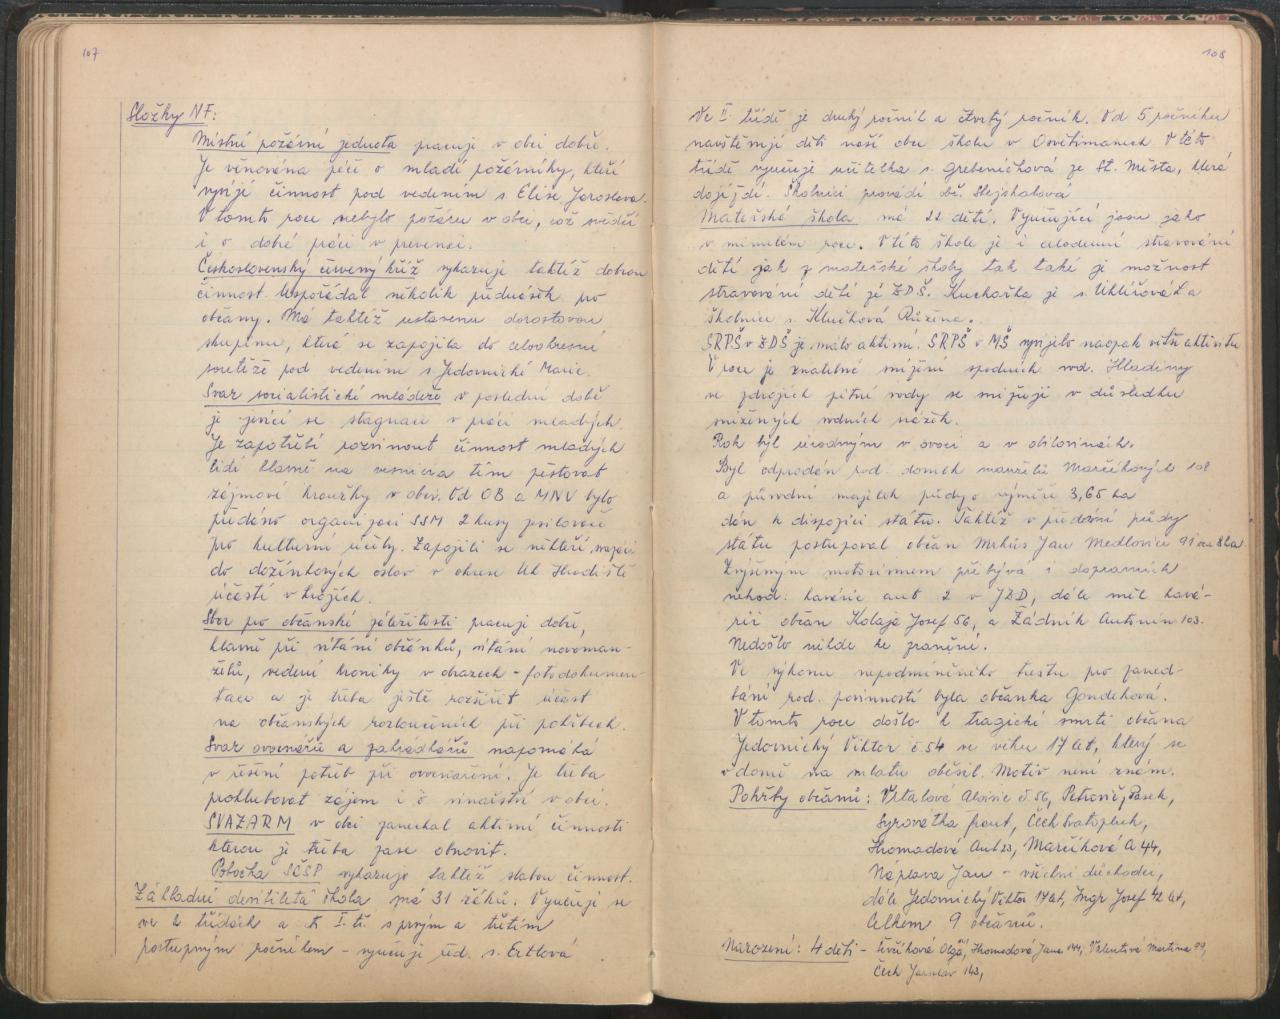 107
Složky NF:
Místní požární jednota pracuje v obci dobře.
Je věnována péče o mladé požárníky, kteří
vyvíjí činnost pod vedením s. Elise Jaroslava.
V tomto roce nebylo požáru v obci, což svědčí
i o dobré práci v prevenci.
Československý červený kříž vykazuje taktéž dobrou
činnost. Uspořádal několik přednášek pro
občany. Má taktéž ustavenu dorostovou
skupinu, která se zapojila do celookresní
soutěže pod vedením s. Jedovnické Marie.
Svaz socialistické mládeže v poslední době
je jevící se stagnace v práci mladých.
Je zapotřebí rozvinout činnost mladých
lidí hlavně na vesnici a tím pěstovat
zájmové kroužky v obci. Od OB a MNV bylo
předáno organizaci SSM 2 kusy zesilovače
pro kulturní účely. Zapojili se někteří svazáci
do dožínkových oslav v okrese Uh. Hradiště
účastí v krojích.
Sbor pro občanské záležitosti pracuje dobře,
hlavně při vítání občánků, vítání novoman-
želů, vedení kroniky v obrazech - fotodokumen-
tace a je třeba ještě rozšířit účast
na občanských rozloučeních při pohřbech.
Svaz ovocnářů a zahrádkářů napomáhá
v řešení potřeb při ovocnaření. Je třeba
prohlubovat zájem i o vinařství v obci.
SVAZARM v obci zanechal aktivní činnosti
kterou je třeba zase obnovit.
Pobočka SČSP vykazuje taktéž slabou činnost.
Základní devítiletá škola má 31 žáků. Vyučuje se
ve 2 třídách a to I. tř. s prvým a třetím
postupným ročníkem - vyučuje řed. s. Ertlová
108
Ve II. třídě je druhý ročník a čtvrtý ročník. Od 5 ročníku
navštěvují děti naší obce školu v Osvětimanech. V této
třídě vyučuje učitelka s. Grebeníčková ze St. Města, která
dojíždí. Školnici provádí obč. Stejskalová
Mateřská škola má 22 dětí. Vyučující jsou jako
v minulém roce. V této škole je i celodenní stravování
dětí jak z mateřské školy tak také je možnost
stravování dětí ze ZDŠ. Kuchařka je s. Uhlířová a
školnice s. Klučková Růžena.
SRPŠ v ZDŠ je málo aktivní. SRPŠ v MŠ vyvíjelo naopak větší aktivitu
V roce je znatelné snížení spodních vod. Hladiny
ve zdrojích pitné vody se snižují v důsledku
snížených vodních srážek.
Rok byl úrodným v ovoci a v obilovinách.
Byl odprodán rod. domek manželů Marčíkových 108
a původní majetek půdy o výměře 3,65 ha
dán k dispozici státu. Taktéž v předávání půdy
státu postupoval občan Mrkús Jan Medlovice 91 2 ha
Zvýšeným motorismem přibývá i dopravních
nehod: havárie aut 2 v JZD, dále měl havá-
rii občan Kolaja Josef 56, a Žádník Antonín 103.
Nedošlo nikde ke zranění.
Ve výkonu nepodmíněného trestu pro zaned-
bání rod. povinností byla občanka Gondeková.
V tomto roce došlo k tragické smrti občana
Jedovnický Viktor č 54 ve věku 17 let, který se
v domě na mlatu oběsil. Motiv není znám.
Pohřby občanů: Vrtalová Aloisie č 56, Petrovič, Pásek,
Syrovátka frant, Čech Svatopluk,
Hromadová Ant 23, Marčíková A 44,
Náplava Jan - všichni důchodci,
dále Jedovnický Viktor 17 let, Ingr Josef 42 let,
Celkem 9 občanů.
Narození: 4 děti - Olga, Hromadová Jana 144, Valentová Martina 99,
Čech Jaroslav 143,